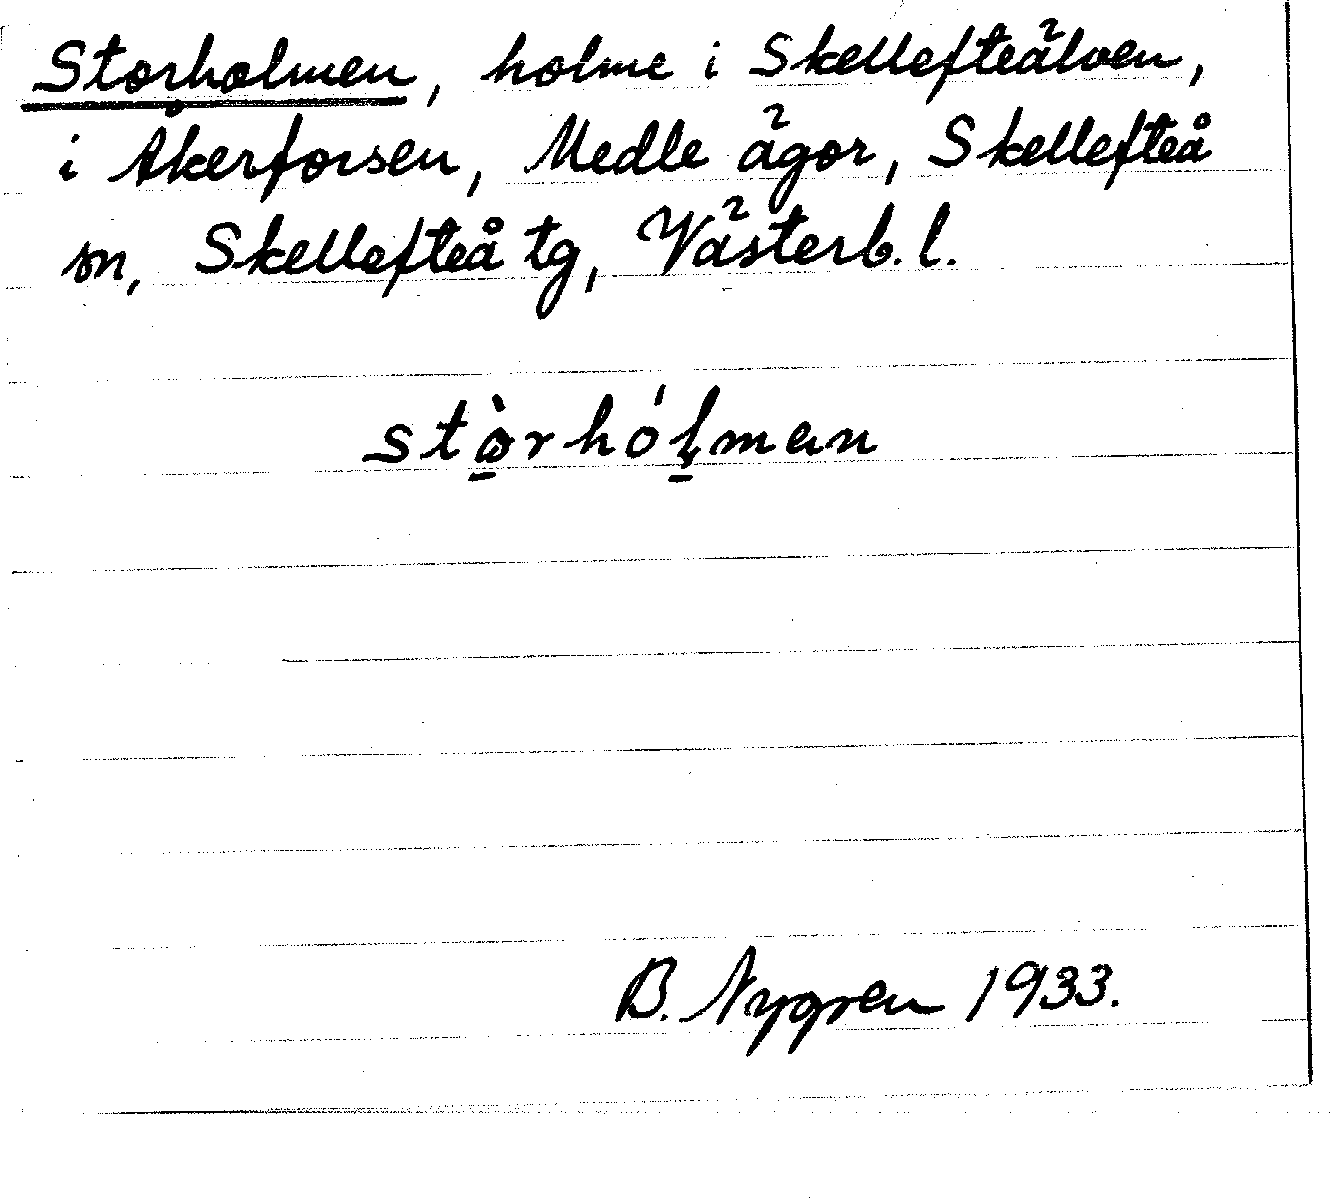 Storholmen, holme i Skellefteälven,
i Åkerforsen, Medle ägor, Skellefteå
sn, Skellefteå tg, Västerb. l.
stòrhóḷman
B. Nygren 1933.